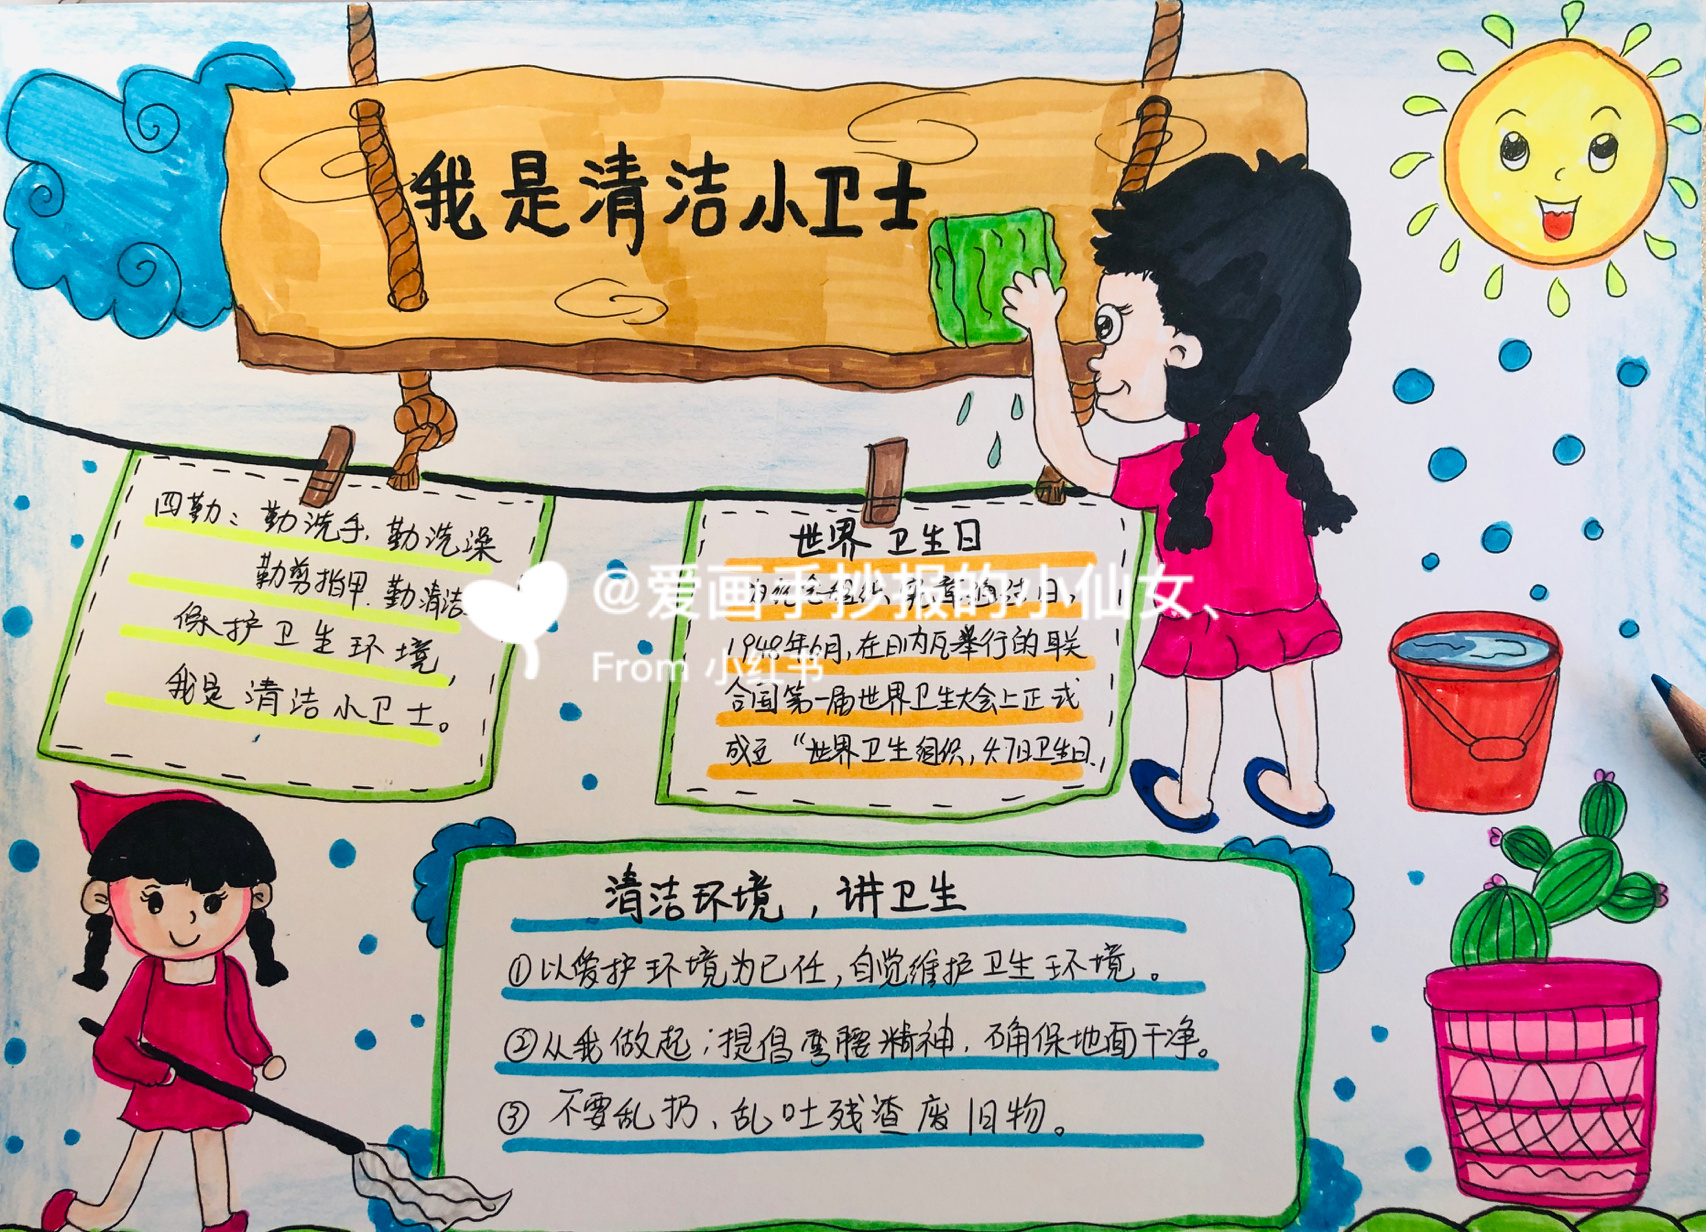 我是清洁小卫士
四勤：勤洗手，勤洗澡
勤剪指甲，勤清洁
保护卫生环境，
我是清洁小卫士。
世界卫生日
1948年6月，在日内瓦举行的联
合国第一届世界卫生大会上正式
成立“世界卫生组织，4.7日卫生日，
@爱画手抄报的小仙女、
From 小红书
清洁环境，讲卫生
①以爱护环境为己任，自觉维护卫生环境。
②从我做起；提倡弯腰精神，确保地面干净。
③不要乱扔、乱吐残渣废旧物。